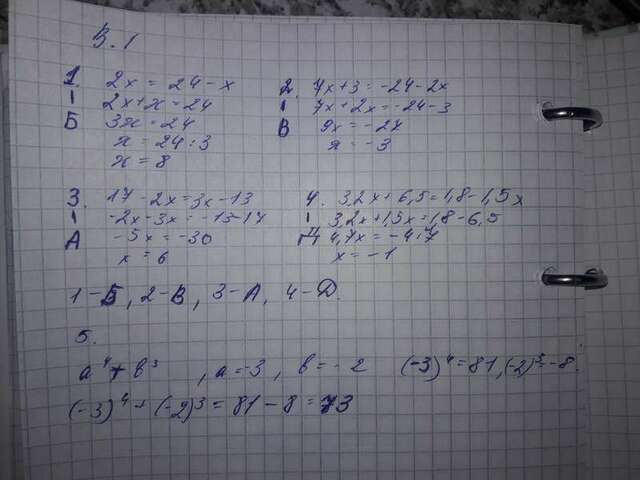 В. 1
1. 2x = 24 - x
2x + x = 24
3x = 24
x = 24 : 3
x = 8
1 Б
2. 7x + 3 = -24 - 2x
7x + 2x = -24 - 3
9x = -27
x = -3
1 В
3. 17 - 2x = 3x - 13
-2x - 3x = -13 - 17
-5x = -30
x = 6
1 А
4. 3,2x + 6,5 = 1,8 - 1,5x
3,2x + 1,5x = 1,8 - 6,5
4,7x = -4,7
x = -1
1 Д
1 - Б, 2 - В, 3 - А, 4 - Д.
5.
a⁴ + b³, a = -3, b = -2 (-3)⁴ = 81, (-2)³ = -8.
(-3)⁴ + (-2)³ = 81 - 8 = 73